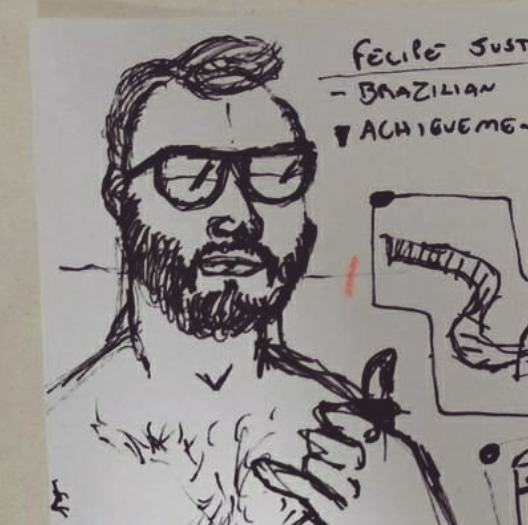 FELIPE JUST
- BRAZILIAN
ACHIEVEME